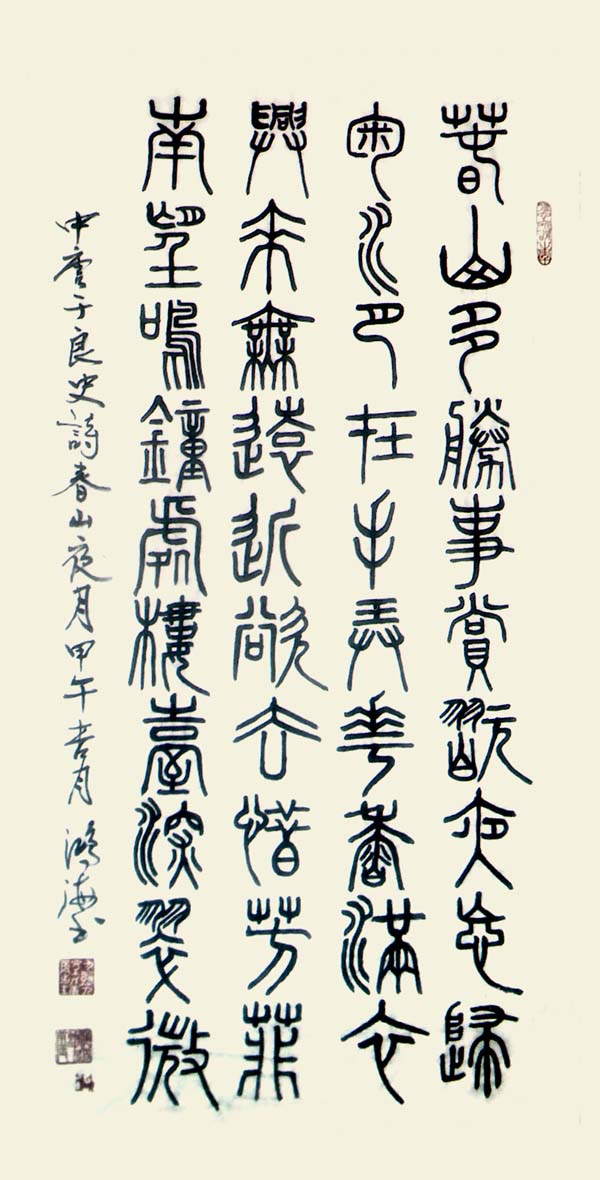 春山多勝事賞翫夜忘歸
匊水月在手弄華香滿衣
興來無遠近欲去惜芳菲
南望鳴鐘處樓臺深翠微
中唐于良史詩春山夜月甲午吉月 鴻海書